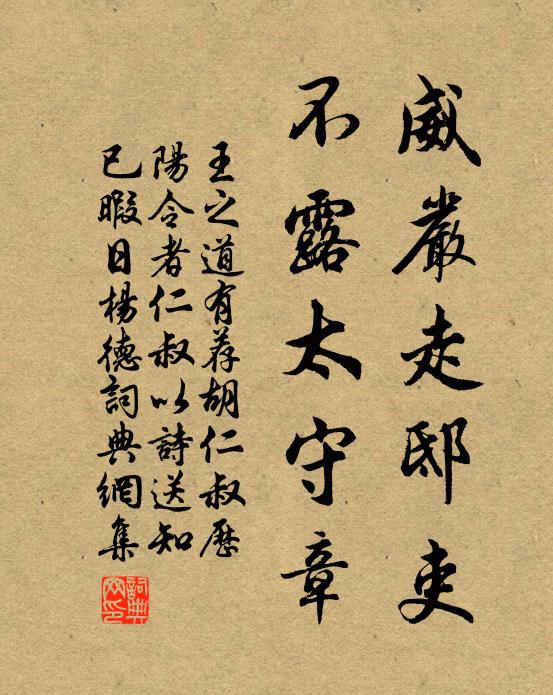 威嚴走邸吏
不露太守章
王之道有荐胡仁叔歷
陽令者仁叔以詩送知
已暇日楊德詞典網集
詞典
网印